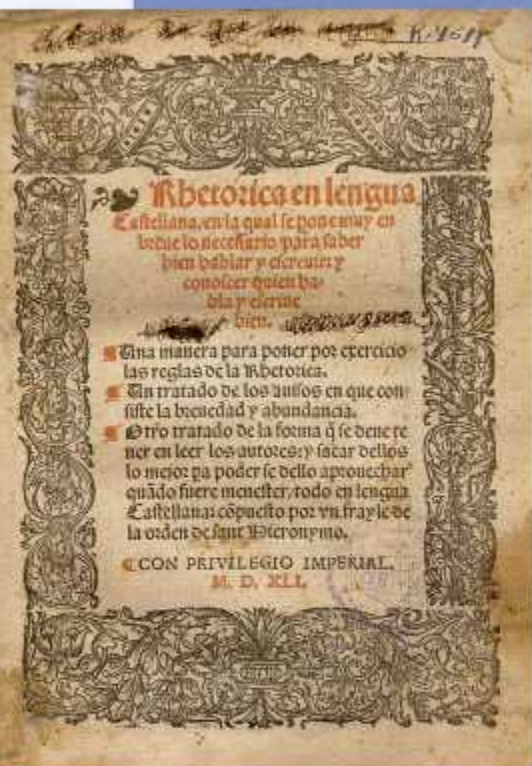 R. 4511
Rhetorica en lengua
Castellana, en la qual se pone muy en
breue lo necessario para saber
bien hablar y escreuir: y
conoscer quien ha-
bla y escriue
bien.
Una manera para poner por exercicio
las reglas de la Rhetorica.
Un tratado de los auisos en que con
siste la breuedad y abundancia.
Otro tratado de la forma q̃ se deue te
ner en leer los autores: y sacar dellos
lo mejor pa poder se dello aprouechar
quãdo fuere menester, todo en lengua
Castellana: cõpuesto por vn frayle de
la orden de sant Hieronymo.
CON PRIVILEGIO IMPERIAL.
M. D. XLI.